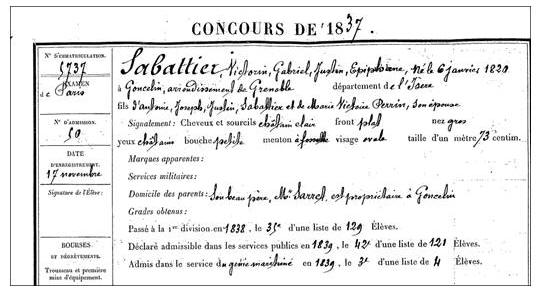 CONCOURS DE 1837.
N° D'IMMATRICULATION.
5737
EXAMEN
de Paris
N° D'ADMISSION.
50
DATE
D'ENREGISTREMENT.
17 novembre
Signature de l'Élève:
BOURSES
ET DÉGRÈVEMENTS.
Trousseau et première
mise d'équipement.
Sabattier, Victorin, Gabriel, Justin, Epiphane, né le 6 janvier 1820
à Goncelin, arrondissement de Grenoble département de l'Isère
fils d'Antoine, Joseph, Justin, Sabattier et de Marie Victoire Perrin, son épouse
Signalement: Cheveux et sourcils châtain clair front plat nez gros
yeux châtains bouche petite menton à fossette visage ovale taille d'un mètre 73 centim.
Marques apparentes:
Services militaires:
Domicile des parents: Son beau père, Mr Sarret, est propriétaire à Goncelin
Grades obtenus:
Passé à la 1re division en 1838, le 35e d'une liste de 129 Élèves.
Déclaré admissible dans les services publics en 1839, le 42e d'une liste de 121 Élèves.
Admis dans le service du génie maritime en 1839, le 3e d'une liste de 4 Élèves.